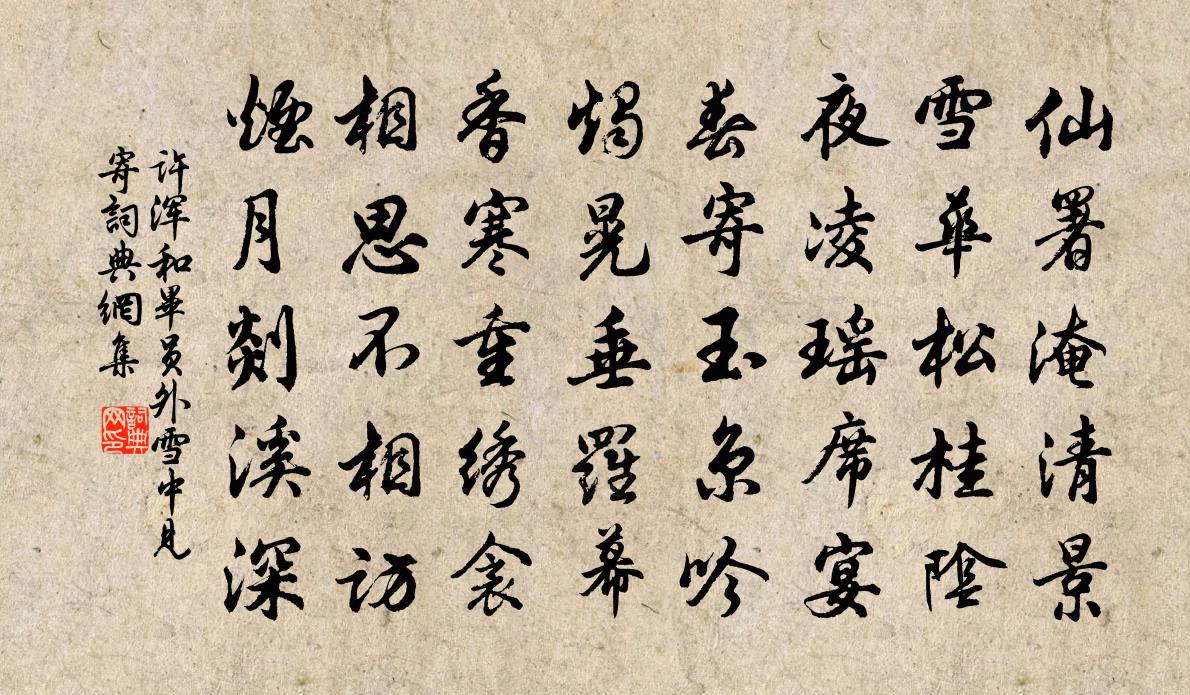 仙署淹清景
雪華松桂陰
夜凌瑶席宴
春寄玉京吟
燭晃垂羅幕
香寒重绣衾
相思不相訪
煙月剡溪深
许浑和畢员外雪中見
寄詞典網集
詞典
网印